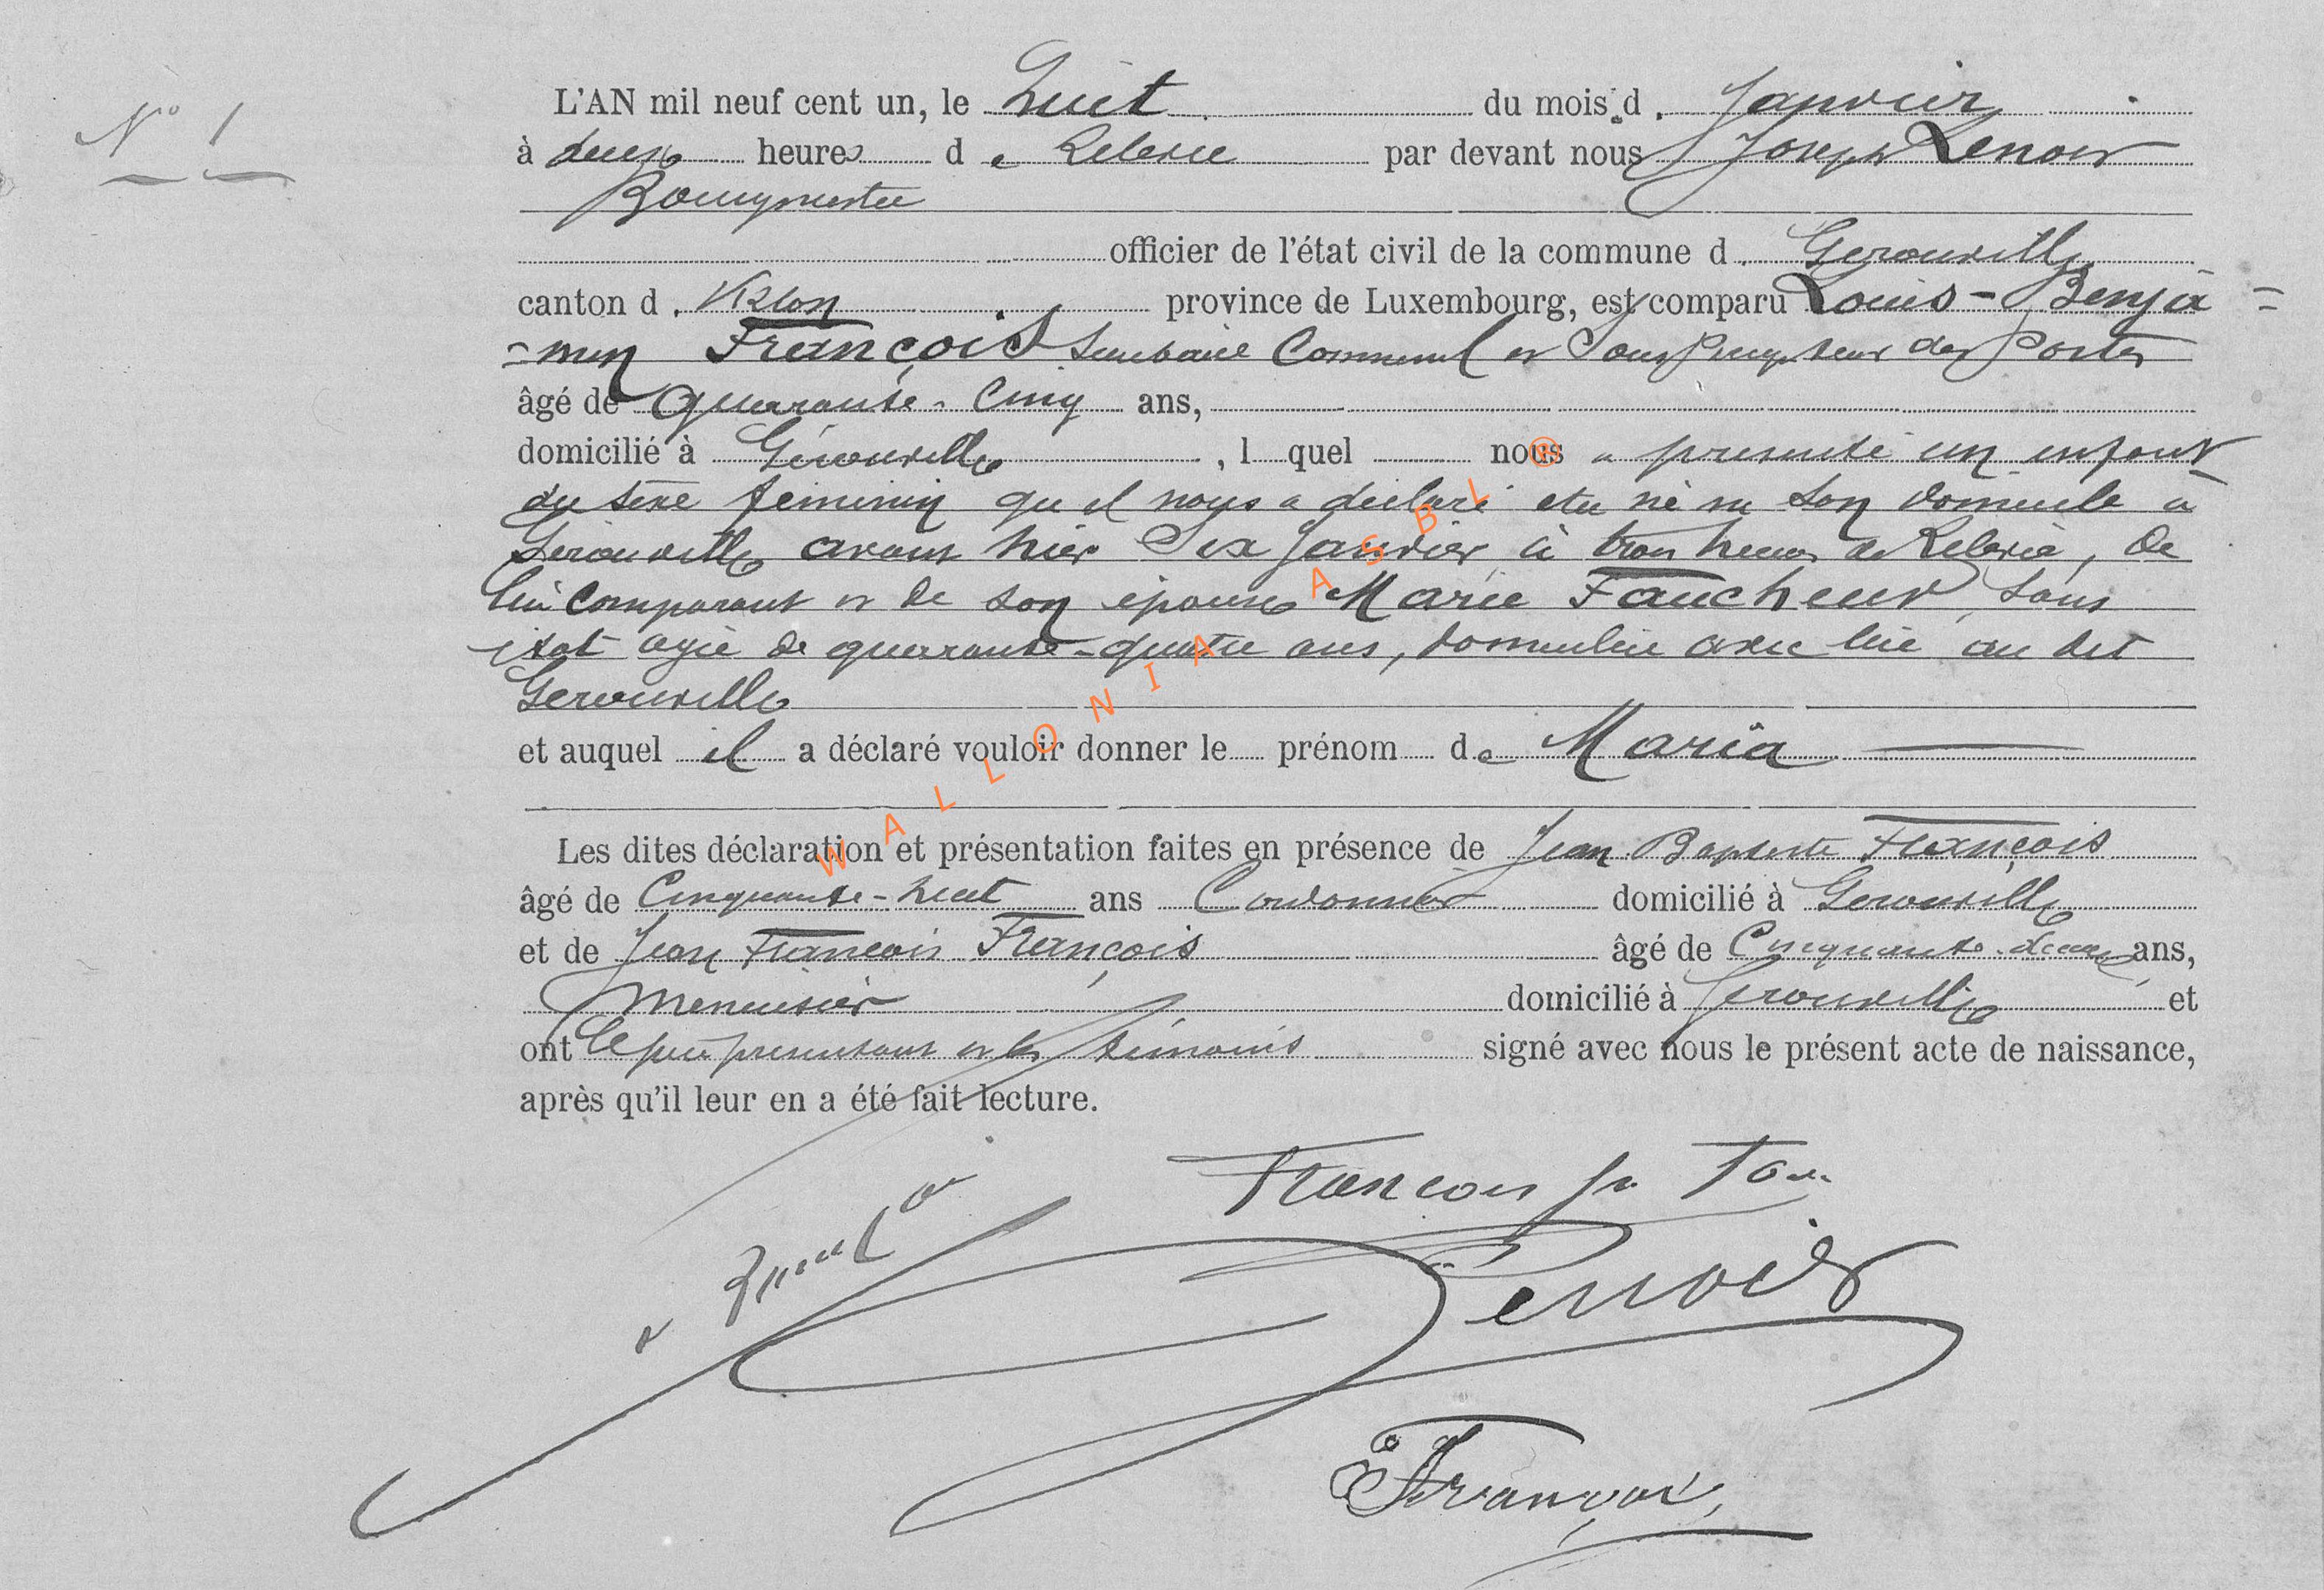 N° 1
L'AN mil neuf cent un, le huit du mois d. Janvier
à deux heures d e Relevée par devant nous Joseph Lenoir
Bourgmestre
officier de l'état civil de la commune d. Gerouville
canton d. Virton province de Luxembourg, est comparu Louis - Benja =
= min François Secrétaire Communal et Sous Percepteur des Postes
âgé de quarante - Cinq ans,
domicilié à Gérouville, l quel nous a présenté un enfant
du sexe féminin qu'il nous a déclaré etre né en son domicile à
Gerouville avant hier Six Janvier, à trois heures de Relevée, de
lui Comparant et de son épouse Marie Faucheur, sans
état agée de quarante-quatre ans, domiciliée avec lui au dit
Gerouville
et auquel il a déclaré vouloir donner le prénom de Maria
Les dites déclaration et présentation faites en présence de Jean Baptiste François
âgé de Cinquante-huit ans Cordonnier domicilié à Gerouville
et de Jean François François âgé de Cinquante-deux ans,
Menuisier domicilié à Gerouville et
ont le père présentant et les témoins signé avec nous le présent acte de naissance,
après qu'il leur en a été fait lecture.
François
Lenoir
François
WALLONIA ASBL ®